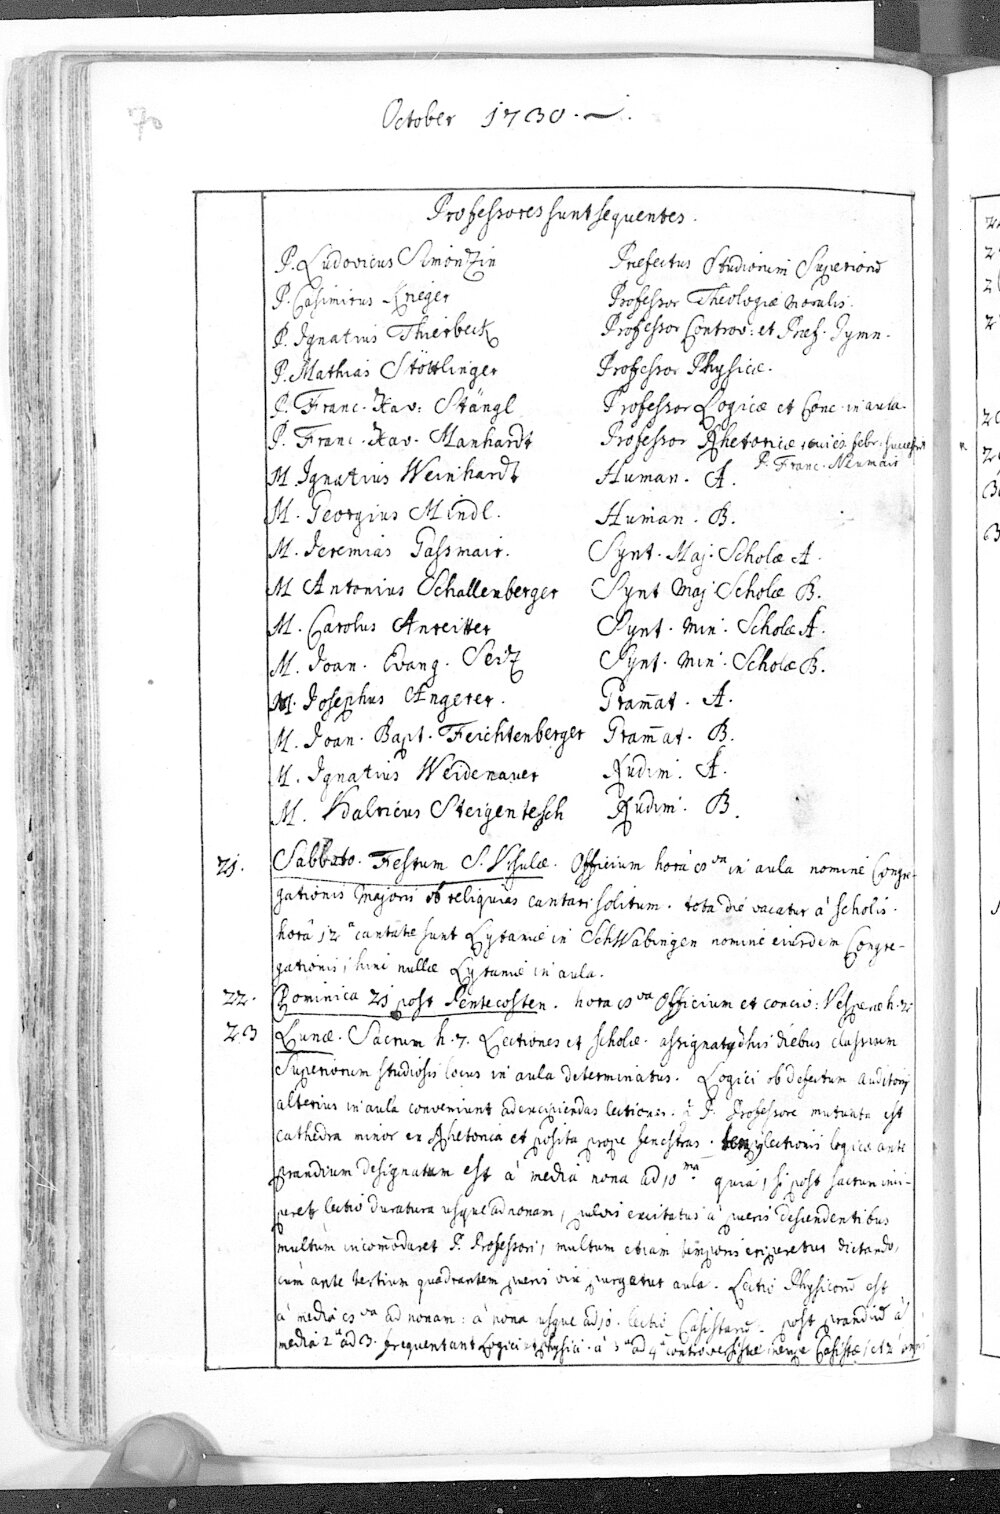 70
October 1730.
Professores sunt sequentes.
P. Ludovicus Simonzin Præfectus Studiorum Superiorū
P. Casimirus Krieger Professor Theologiæ moralis.
P. Ignatius Thierbeck Professor Controv: et Præf. Gymn.
P. Mathias Stöttlinger Professor Physicæ.
P. Franc. Xav. Stängl Professor Logicæ et Conc. in aula.
P. Franc. Xav. Manhardt Professor Rhetoricæ, cui febr.
P. Franc. Neumair
M. Ignatius Weinhardt Human. A.
M. Georgius Mindl. Human. B.
M. Jeremias Gassmair. Synt. Maj. Scholæ A.
M Antonius Schallenberger Synt Maj Scholæ B.
M. Carolus Anreitter Synt. Min. Scholæ A.
M. Joan. Evang. Seiz Synt. Min. Scholæ B.
M. Josephus Angerer. Gram̄at. A.
M. Joan. Bapt. Feichtenberger Gram̄at. B.
M. Ignatius Weidenauer Rudim. A.
M. Udalricus Steigentesch Rudim. B.
21. Sabbato. Festum S. Ursulæ. Officium horâ 8va in aula nomine Congre-
gationis Majoris ob reliquias cantari solitum. tota die vacatur à scholis.
horâ 12a cantatæ sunt Lytaniæ in SchWabingen nomine eiusdem Congre-
gationis, hinc nullæ Lytaniæ in aula.
22. Dominica 21 post Pentecosten. hora 8va officium et concio: Vesperæ h. 2
23 Lunæ. Sacrum h. 7. Lectiones et scholæ. assignatq his diebus classium
Superiorum studiosis locus in aula determinatus. Logici ob defectum auditorij
alterius in aula conveniunt ad excipiendas lectiones. à P. Professore mutuata est
cathedra minor ex Rhetorica et posita prope fenestras. temp9 lectionis logicæ ante
prandium designatum est à media nona ad 10ma. quia, si post sacrum inci-
peret lectio duratura usque ad nonam, pulvis excitatus à pueris descendentibus
multùm incom̄odaret P. Professori, multum etiam temporis eriperetur dictando,
cùm ante tertium quadrantem pueris vix purgetur aula. Lectio Physicorū est
à media 8va ad nonam: à nona usque ad 10. lectio Casistarū. post prandiū à
media 2a ad 3. frequentant Logici et Physici. à 3a ad 4 controversistæ, nempe Casistæ, et